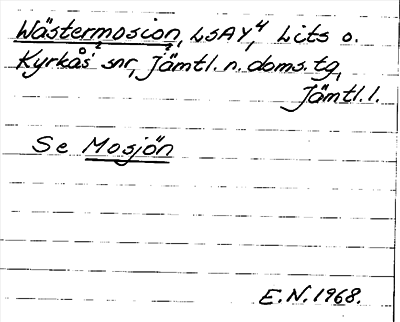 Wästermosion, LSAY4, Lits o.
Kyrkås snr, Jämtl. n. doms. tg,
Jämtl. l.
Se Mosjön
E.N. 1968.